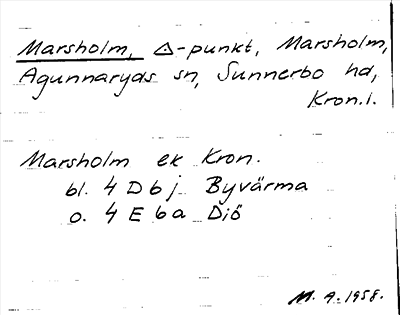 Marsholm, △-punkt, Marsholm,
Agunnaryds sn, Sunnerbo hd,
Kron.l.
Marsholm ek Kron.
bl. 4 D b j Byvärma
o. 4 E 6 a Diö
M. A. 1958.